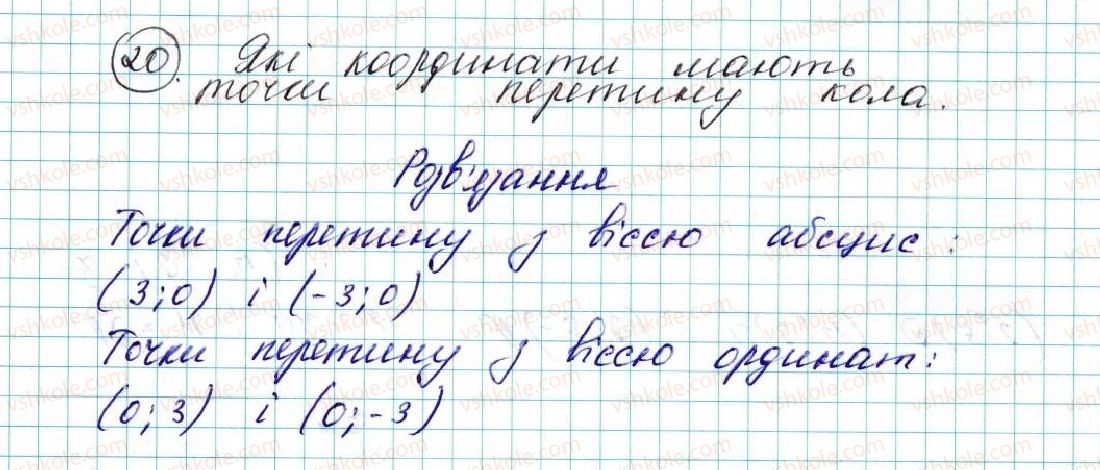 20. Які координати мають
точки перетину кола.
Розв'язання
Точки перетину з віссю абсцис:
(3;0) і (-3;0)
Точки перетину з віссю ординат:
(0;3) і (0;-3)